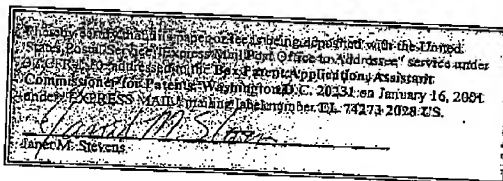 I hereby certify that this paper or fee is being deposited with the United
States Postal Service "Express Mail Post Office to Addressee" service under
37 C.F.R. 1.10 addressed to the Box Patent Application, Assistant
Commissioner for Patents, Washington D.C. 20231 on January 16, 2001
under "EXPRESS MAIL" mailing label number EL 74273 2028 US.
Janet M. Stevens
Janet M. Stevens